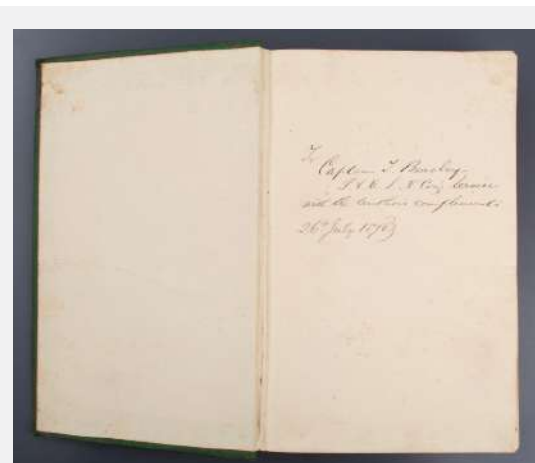 To
Captain J. Beasley
P. & O. S. N. Coy's Service
with the Authors compliments
26th July 187